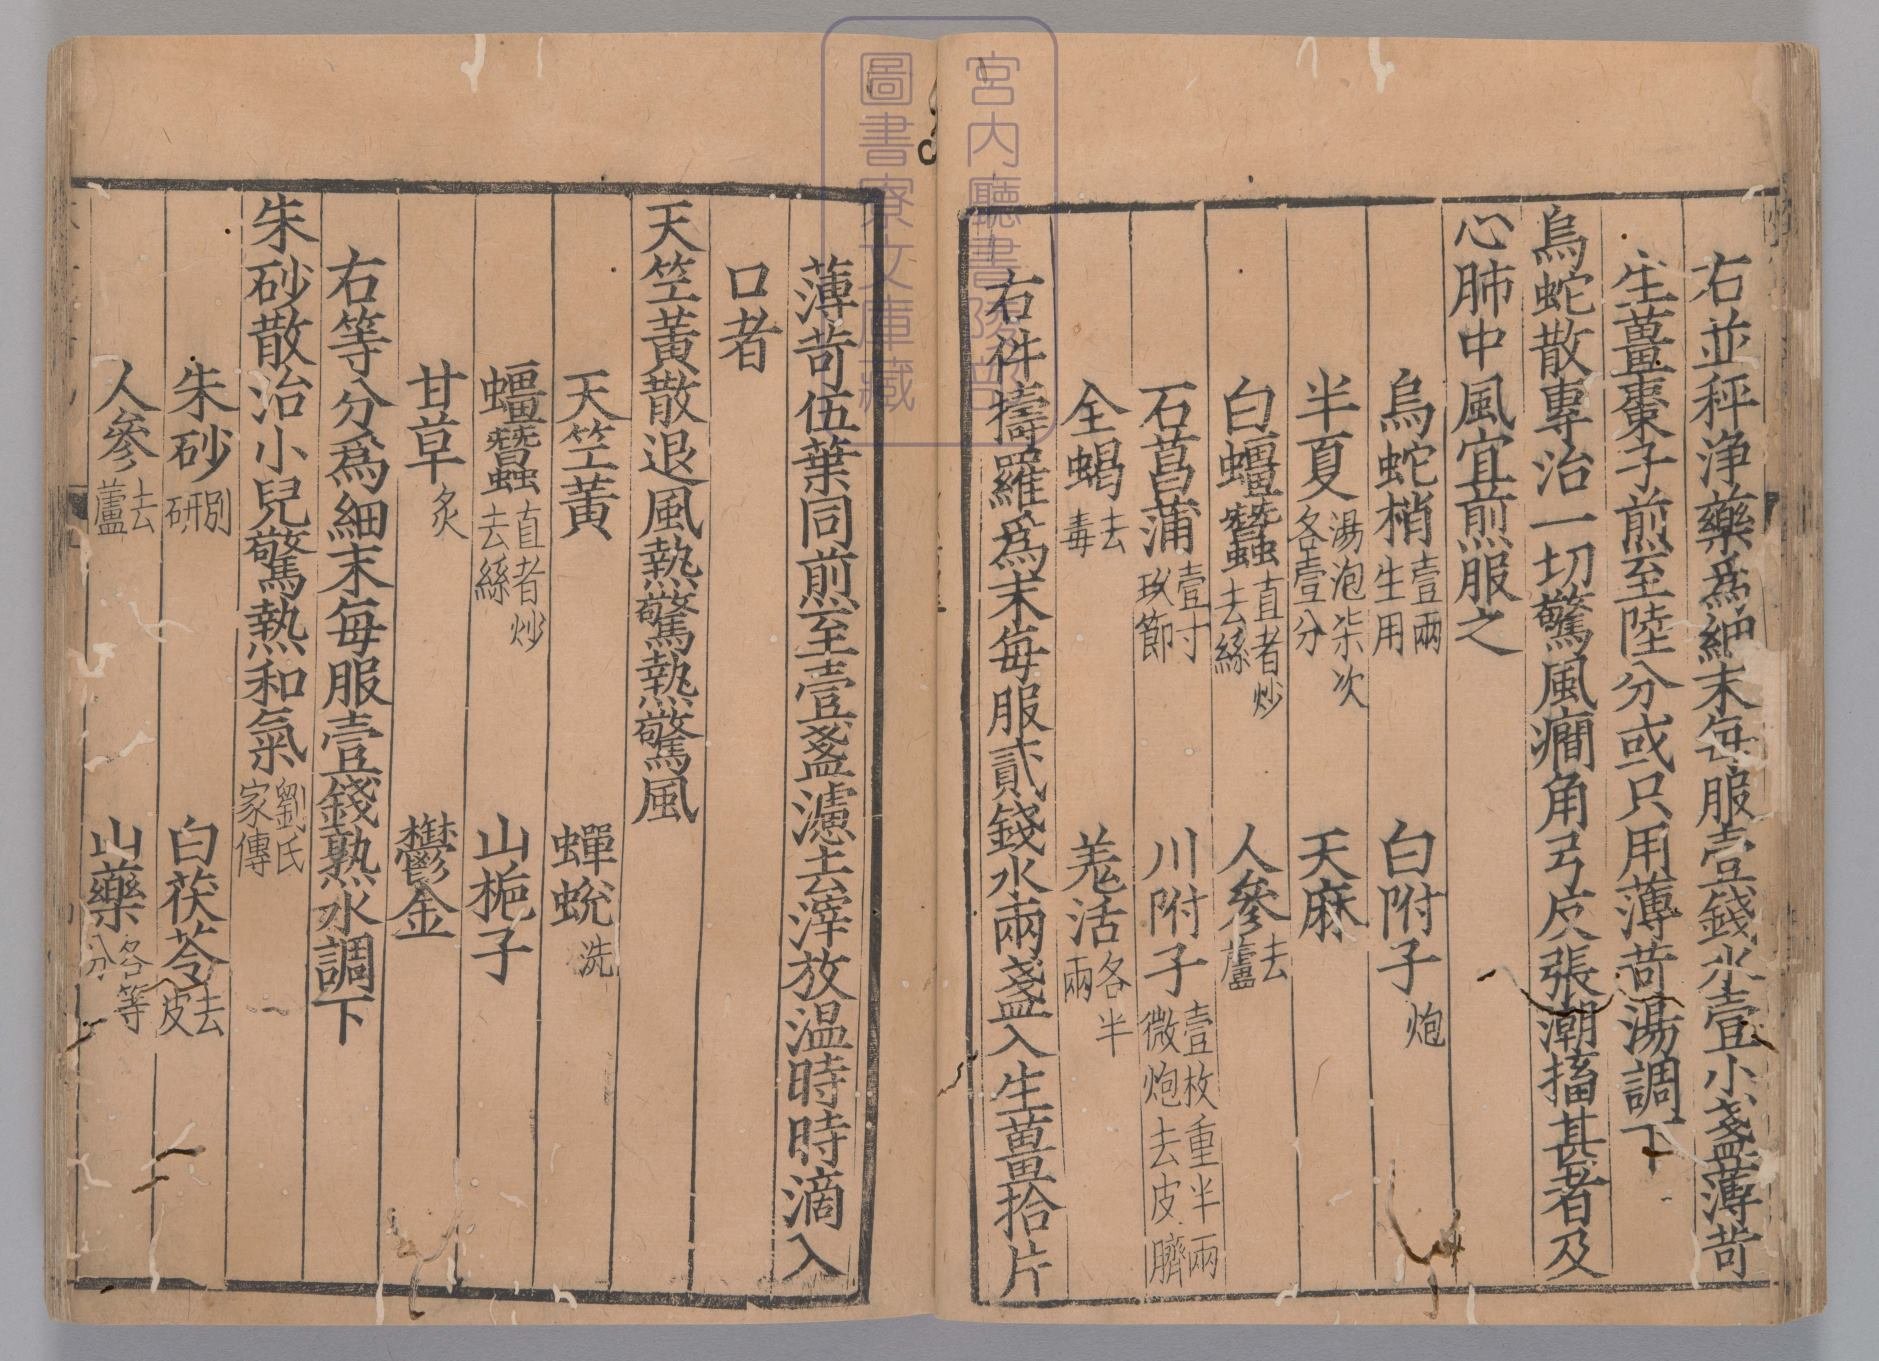 右並秤浄藥爲細末每服壹錢水壹小盞薄苛
生薑棗子煎至陸分或只用薄苛湯調下
烏蛇散專治一切驚風癇角弓反張潮搐甚者及
心肺中風宜煎服之
烏蛇梢壹兩生用 白附子炮
半夏湯泡柒次各壹分 天麻
白蠶直者炒去絲 人參去蘆
石菖蒲壹寸玖節 川附子壹枚重半兩微炮去皮臍
全蝎去毒 羌活各半兩
右件擣羅爲末每服貳錢水兩盞入生薑拾片
薄苛伍葉同煎至壹盞濾去滓放温時時滴入
口者
天笁黃散退風熱驚熱驚風
天笁黃 蟬蛻洗
蠶直者炒去絲 山梔子
甘草炙 鬱金
右等分爲細末每服壹錢熟水調下
朱砂散治小兒驚熱和氣劉氏家傳
朱砂別研 白茯苓去皮
人參去蘆 山藥各等分
宮内廳書陵部
圖書寮文庫藏